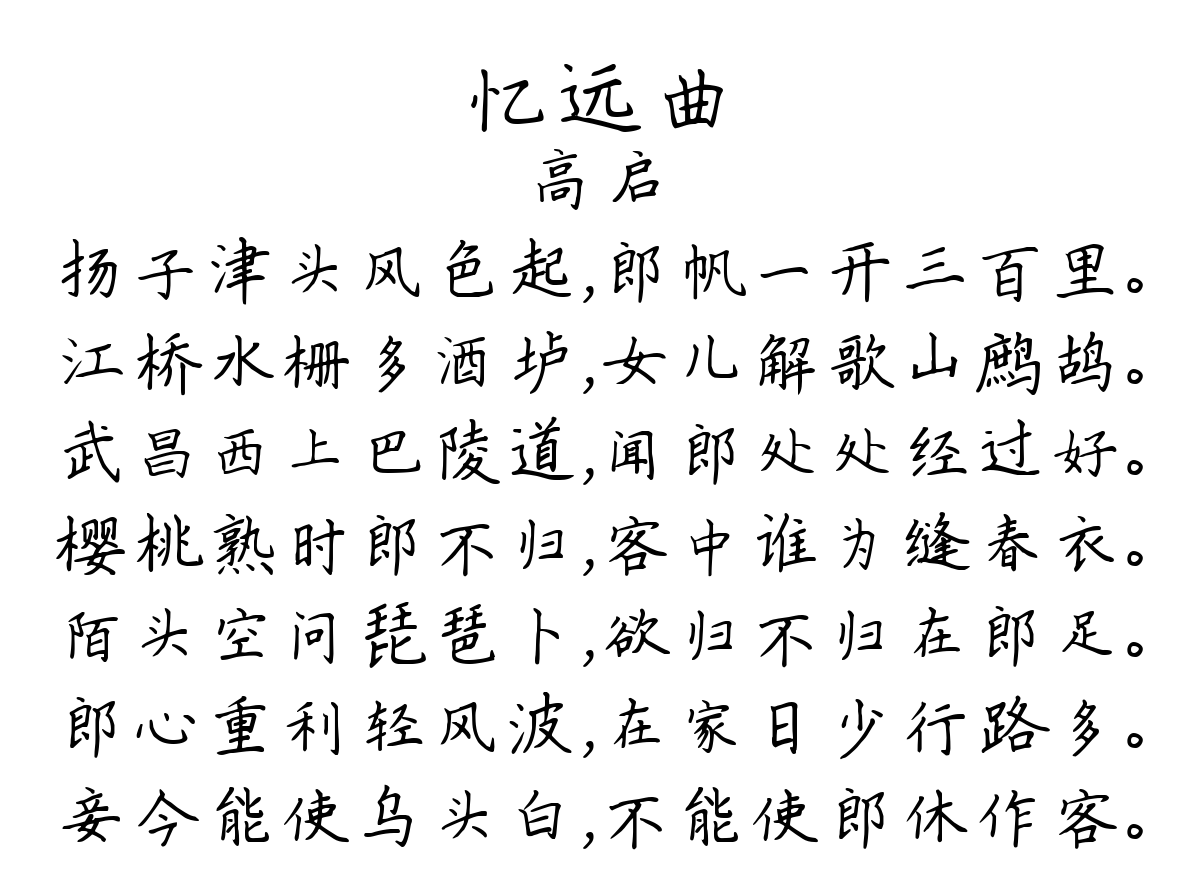 忆远曲
高启
扬子津头风色起,郎帆一开三百里。
江桥水栅多酒垆,女儿解歌山鹧鸪。
武昌西上巴陵道,闻郎处处经过好。
樱桃熟时郎不归,客中谁为缝春衣。
陌头空问琵琶卜,欲归不归在郎足。
郎心重利轻风波,在家日少行路多。
妾今能使乌头白,不能使郎休作客。